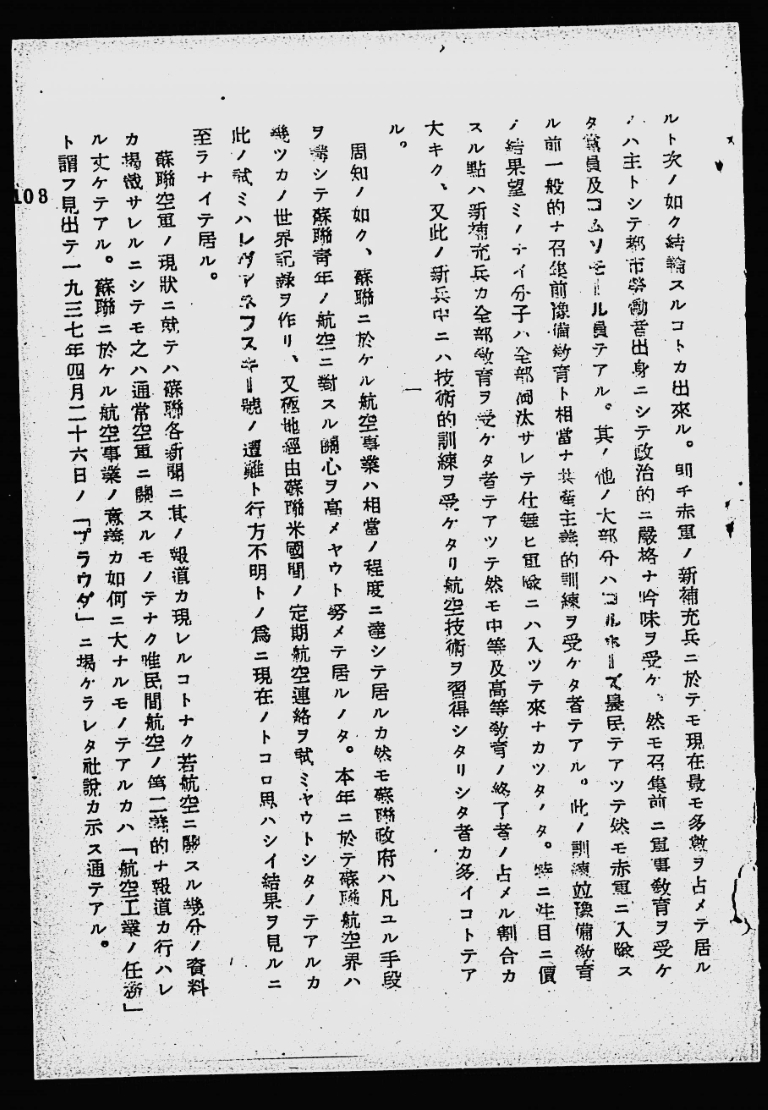 ルト次ノ如ク結論スルコトカ出來ル。卽チ赤軍ノ新補充兵ニ於テモ現在最モ多數ヲ占メテ居ル
ノハ主トシテ都市勞働者出身ニシテ政治的ニ嚴格ナ吟味ヲ受ケ、然モ召集前ニ軍事敎育ヲ受ケ
タ黨員及コムソモール員テアル。其ノ他ノ大部分ハコルホーズ農民テアツテ然モ赤軍ニ入隊ス
ル前一般的ナ召集前豫備敎育ト相當ナ共產主義的訓練ヲ受ケタ者テアル。此ノ訓練竝豫備敎育
ノ結果望ミノナイ分子ハ全部淘汰サレテ仕舞ヒ軍隊ニハ入ツテ來ナカツタノタ。特ニ注目ニ價
スル點ハ新補充兵カ全部敎育ヲ受ケタ者テアツテ然モ中等及高等敎育ノ終了者ノ占メル割合カ
大キク、又此ノ新兵中ニハ技術的訓練ヲ受ケタリ航空技術ヲ習得シタリシタ者カ多イコトテア
ル。
一
周知ノ如ク、蘇聯ニ於ケル航空事業ハ相當ノ程度ニ達シテ居ルカ然モ蘇聯政府ハ凡ユル手段
ヲ講シテ蘇聯靑年ノ航空ニ對スル關心ヲ高メヤウト努メテ居ルノタ。本年ニ於テ蘇聯航空界ハ
幾ツカノ世界記錄ヲ作リ、又極地經由蘇聯米國間ノ定期航空連絡ヲ試ミヤウトシタノテアルカ
此ノ試ミハレヴァネフスキー號ノ遭難ト行方不明トノ爲ニ現在ノトコロ思ハシイ結果ヲ見ルニ
至ラナイテ居ル。
蘇聯空軍ノ現狀ニ就テハ蘇聯各新聞ニ其ノ報道カ現レルコトナク若航空ニ關スル幾分ノ資料
カ揭載サレルニシテモ之ハ通常空軍ニ關スルモノテナク唯民間航空ノ第二義的ナ報道カ行ハレ
ル丈ケテアル。蘇聯ニ於ケル航空事業ノ意義カ如何ニ大ナルモノテアルカハ「航空工業ノ任務」
ト謂フ見出テ一九三七年四月二十六日ノ「プラウダ」ニ揭ケラレタ社說カ示ス通テアル。
108